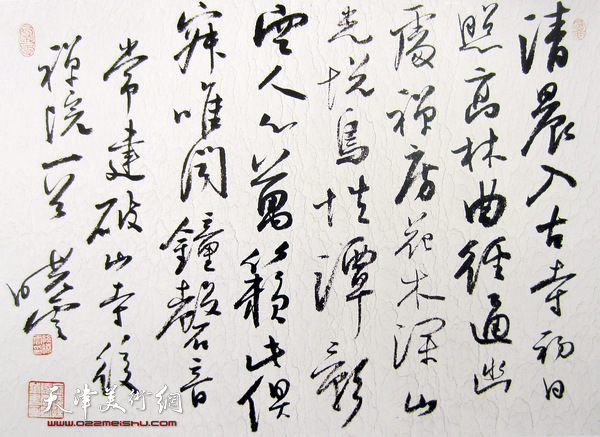 清晨入古寺初日
照高林曲徑通幽
處禪房花木深山
光悦鳥性潭影
空人心萬籟此俱
寂唯聞鐘磬音
常建破山寺後
禪院一首
曉雲
天津美術網
www.022meishu.com